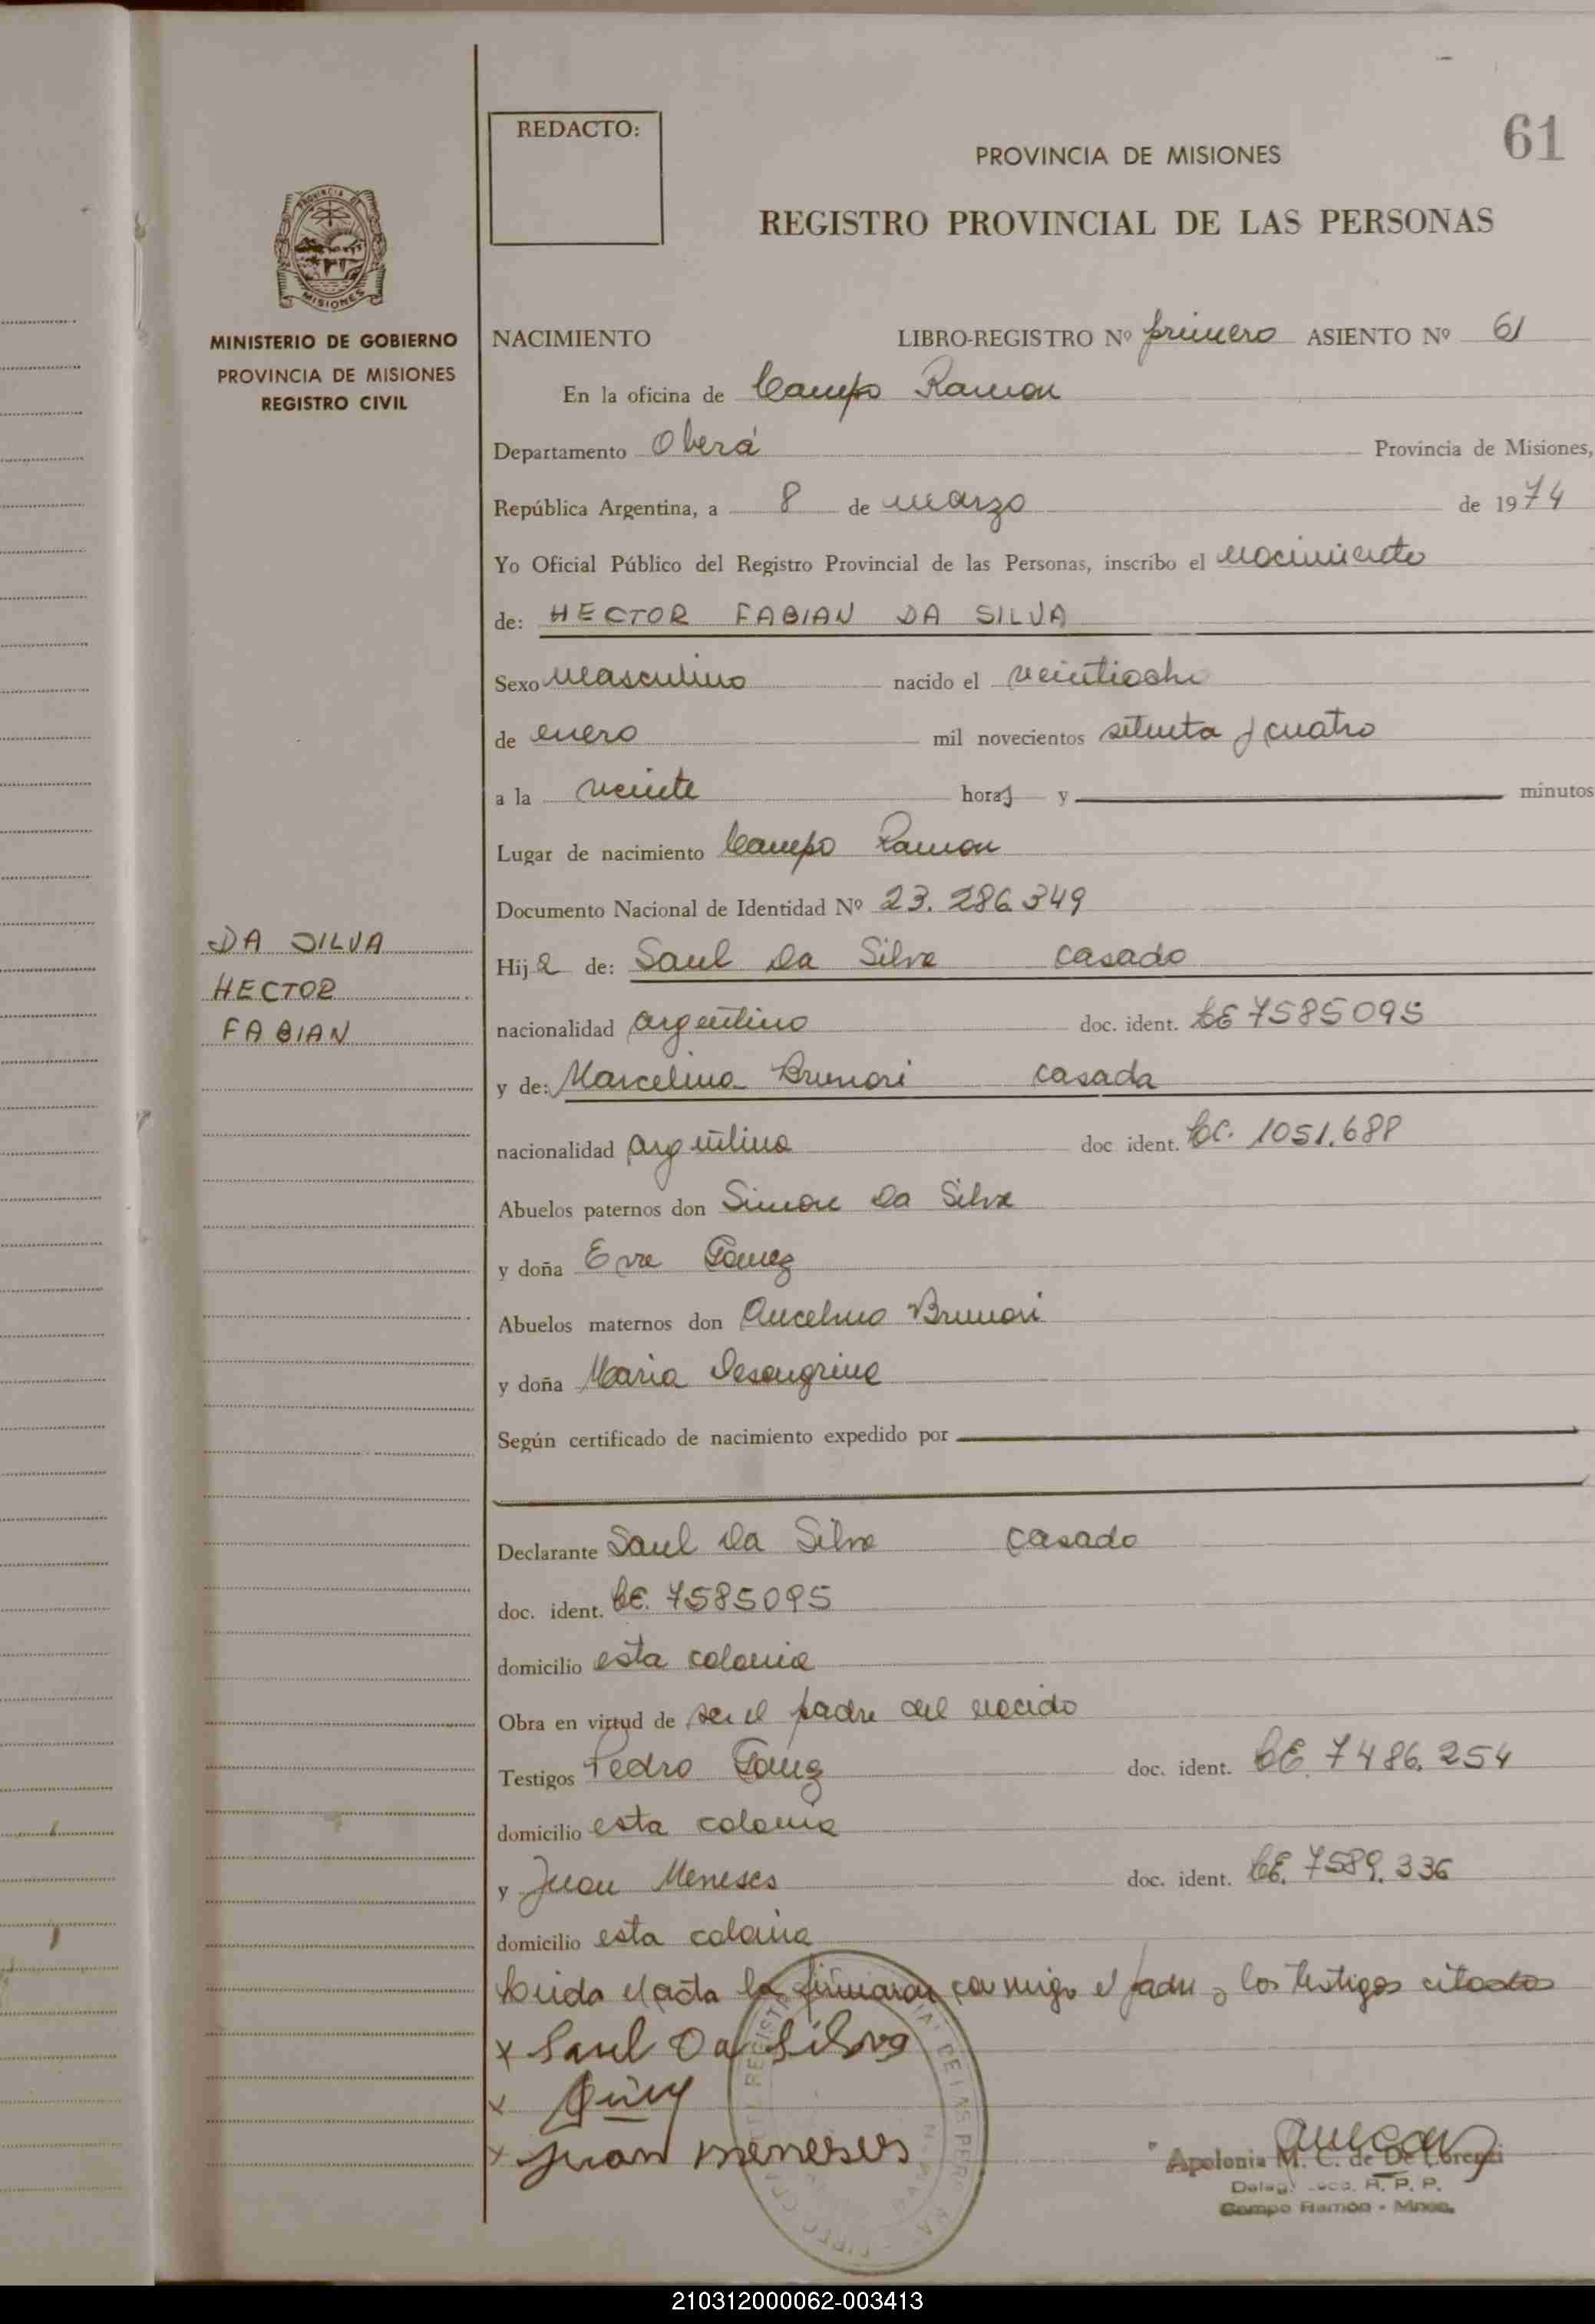 61
REDACTO:
PROVINCIA DE MISIONES
REGISTRO PROVINCIAL DE LAS PERSONAS
PROVINCIA DE
MISIONES
MINISTERIO DE GOBIERNO
PROVINCIA DE MISIONES
REGISTRO CIVIL
NACIMIENTO LIBRO-REGISTRO Nº primero ASIENTO Nº 61
En la oficina de Campo Ramon
Departamento Oberá Provincia de Misiones,
República Argentina, a 8 de marzo de 1974
Yo Oficial Público del Registro Provincial de las Personas, inscribo el nacimiento
de: HECTOR FABIAN DA SILVA
Sexo Masculino nacido el veintiocho
de enero mil novecientos setenta y cuatro
a la veinte horas y minutos
Lugar de nacimiento Campo Ramon
Documento Nacional de Identidad Nº 23.286.349
DA SILVA
HECTOR
FABIAN
Hijo de: Saul Da Silva casado
nacionalidad argentino doc. ident. CE 7585095
y de: Marcelina Brunori casada
nacionalidad argentina doc ident. CC. 1051.688
Abuelos paternos don Simon Da Silva
y doña Eva Gomez
Abuelos maternos don Ancelmo Brunori
y doña Maria
Según certificado de nacimiento expedido por
Declarante Saul Da Silva casado
doc. ident. CE. 7585095
domicilio esta colonia
Obra en virtud de ser el padre del nacido
Testigos Pedro doc. ident. CE. 7486.254
domicilio esta colonia
y Juan Meneses doc. ident. CE. 7589.336
domicilio esta colonia
Leida el acta la firmaran conmigo el padre y los testigos citados
x Saul Da Silva
x
x Juan meneses
Apolonia M. C. de De Lorenzi
R. P. P.
Campo Ramón - Mnes.
210312000062-003413